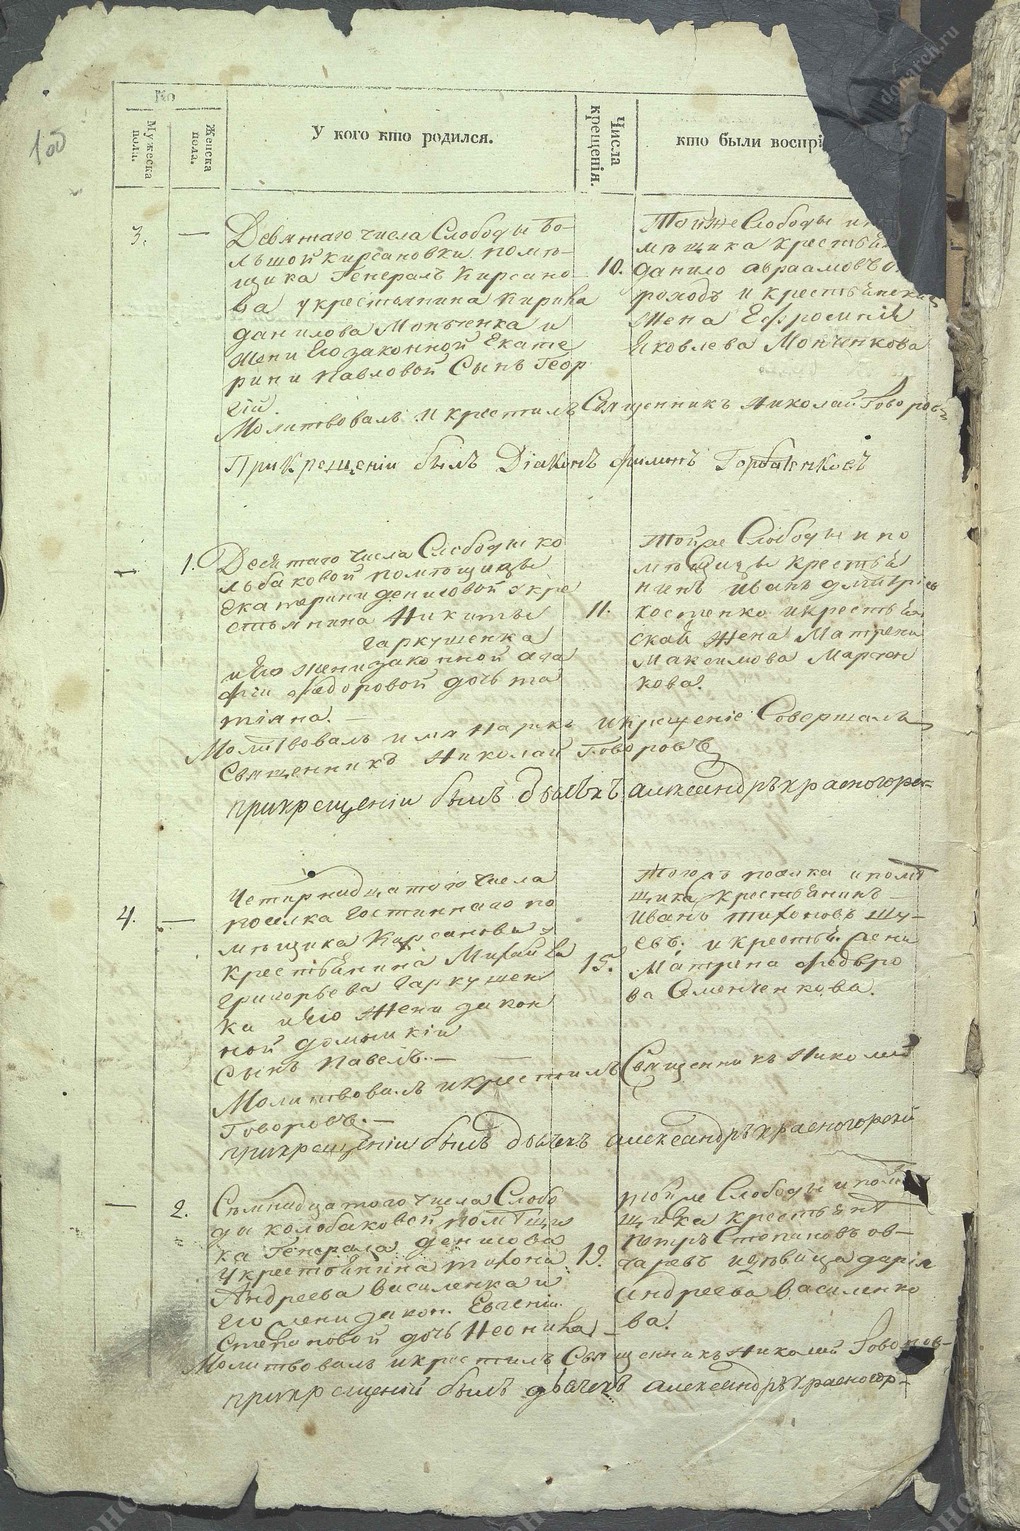 100
No
Мужеска пола.
Женска пола.
У кого кто родился.
Числа крещенія.
кто были воспрі
3.
—
Девятаго числа Слободы Бо-
льшой кирсановки поме-
щика Генералъ Кирсано
ва у крестьянина Кирила
данилова Мопченка и
жени Его законной Екате
рини павловой Сынъ Геор
гій.
10.
Той же Слободы и по
мещика крестьян
данило авраамовъ
и крестьянска
жена Ефросинія
Яковлева Мопченкова
Молитвовалъ и крестилъ Священникъ Николай Говоровъ
При Крещеніи былъ Діаконъ Филипъ Горбаченковъ
—
1.
Десятаго числа Слободы ко
лбаковой помещицы
Екатерини денисовой у кре
стьянина Никиты
гаркушенка
и его жени законной ага
фіи федоровой дочь та
тіана. —
11.
Той же Слободы и по
мещицы крестья
нинъ иванъ дмитріевъ
костенко и крестья
ская жена Матрена
Максимова Мартен
кова.
Молитвовалъ имя нарекъ и крещеніе Совершалъ
Священникъ Николай Говоровъ
при крещеніи былъ дьячекъ александръ красногорс-
4.
—
Четирнадцатого числа
поселка Гостиннаго по
мещика Кирсанова у
крестьянина Михайла
григорьева Гаркушен
ка и его жени закон
ной домникіи
Сынъ Павелъ. —
15.
Тогожъ поселка и поме
щика крестьянинъ
Иванъ тихоновъ Шу-
евъ. и крестья. жена
Матрена федоро
ва Семенченкова.
Молитвовалъ и крестилъ Священникъ Николай
Говоровъ. —
при крещеніи былъ дьячекъ александръ красногорскій
—
2.
Семнадцатого числа Слобо
ди колбаковой помещи
ка Генерала денисова
у крестьянина тихона
Андреева Василенка и
Его жени закон. Евгеніи
Степановой дочь Неонила —
19.
той же Слободы и поме
щика крестьян
петръ Степановъ ов-
чаревъ и девица дарія
андреева Василенко
ва.
Молитвовалъ и крестилъ Священникъ Николай Говоров-
при крещеній былъ дьячекъ александръ красногор-
donarch.ru